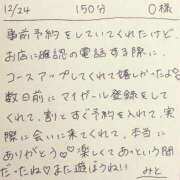 12/24 150分 O様
事前予約をしていてくれたけど、
お店に確認の電話する際に、
コースアップしてくれて嬉しかったよ
数日前にマイガール登録をして
くれて、割とすぐ予約を入れて、実
際に会いに来てくれて、本当に
ありがとう♡♡楽しくてあっという間
だったね♡また遊ぼうね!! みと